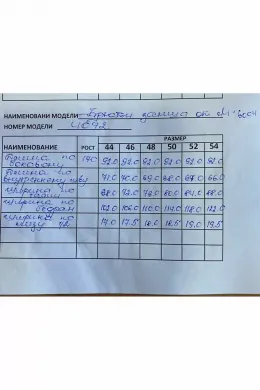 НАИМЕНОВАНИ МОДЕЛИ Брюки
НОМЕР МОДЕЛИ 4692
РАЗМЕР
НАИМЕНОВАНИЕ РОСТ 44 46 48 50 52 54
Длина по боковому 170 92.0 92.0 92.0 92.0 92.0 92.0
Длина по внутреннему шву 71.0 70.0 69.0 68.0 67.0 66.0
Ширина по талии 68.0 72.0 76.0 80.0 84.0 88.0
Ширина по бедрам 102.0 106.0 110.0 114.0 118.0 122.0
Ширина по низу 17.0 17.5 18.0 18.5 19.0 19.5